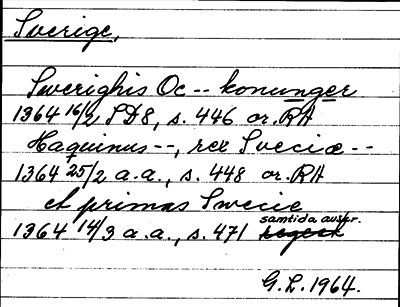 Sverige,
Swerighis Oc -- konunger
1364 16/2 SD8, s. 446 or. RA
Haquinus --, rex Sveciæ --
1364 25/2 a.a., s. 448 or. RA
et primas Swecie
samtida avskr.
1364 14/3 a.a., s. 471
G.L. 1964.